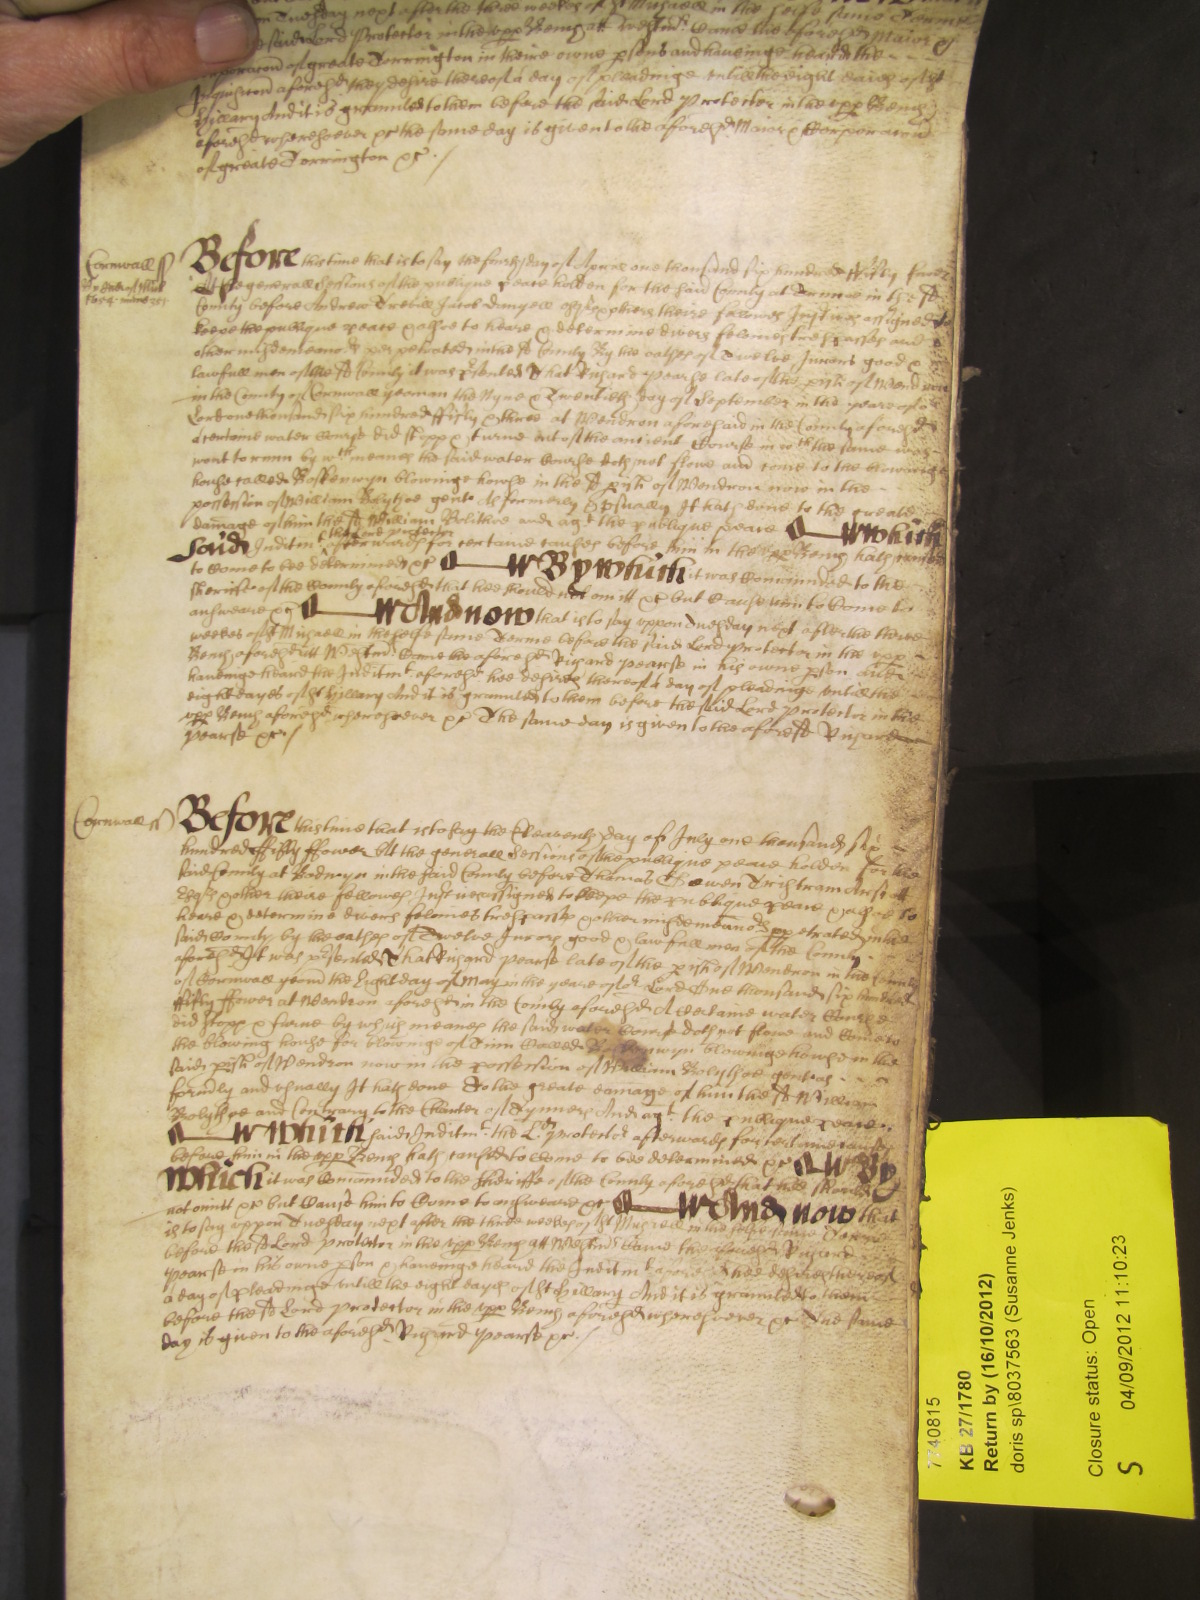 on Tuesday next after the three weekes of St Michaell in the selfe same Terme
said Lord Protector in the upp Bench att Westmr Came the aforesd Maior &
Corporacon of greate Torrington in theire owne psons and haveinge heard the
aforesd they desire thereof a day of pleadinge untill the eight daies of St
Hillary And it is graunted to them before the said Lord Protector in the upp Bench
aforesd wheresoever &c the same day is given to the aforesd Maior & Corporacon
of greate Torrington &c /
Cornwall ss
Before this time that is to say the day of Aprill one thousand six hundred fifty fower
At the generall Sessions of the publique peace holden for the said County at Truroe in the sd
County before Andrew Trevill Jacob Danyell & others theire fellowes Justices assigned to
keepe the publique peace & alsoe to heare & determine divers felonies trespasses and
other misdemeanors perpetrated in the sd County By the oathes of Twelve Jurors good &
lawfull men of the sd County it was psented That Richard Pearse late of the pish of Wendron
in the County of Cornwall yeoman the Nyne & Twentieth day of September in the yeare of or
Lord one thousand six hundred fifty & three at Wendron aforesaid in the County aforesd
A certaine water Course did stopp & turne out of the ancient Course in wch the same was
wont to runn by wch meanes the said water Course doth not flowe and come to the blowinge
house called blowinge house in the sd pish of Wendron now in the
possession of William Rolythoe gent As formerly & usually It hath done to the greate
damage of him the sd William Rolithoe and agt the publique peace which
said Inditmt the Lord Protector afterwards for certaine causes before him in the upp Bench hath caused
to Come to bee determined &c By which it was Commanded to the
Sheriffe of the County aforesd that hee should not omitt &c but Cause him to Come to
answeare &c And now that is to say uppon Tuesday next after the three
weekes of St Michaell in the selfe same Terme before the said Lord Protector in the upp
Bench aforesd att Westmr Came the aforesd Richard Pearse in his owne pson and
haveinge heard the Inditmt aforesd hee desires thereof a day of pleadinge untill the
eight dayes of St Hillary And it is graunted to them before the said Lord Protector in the
upp Bench aforesd wheresoever &c The same day is given to the aforesd Richard
Pearse &c /
Cornwall ss
Before this time that is to say the Eleaventh day of July one thousand six
hundred fifty ffower At the generall Sessions of the publique peace holden for the
said County at Bodmyn in the said County before Thomas Tristram
Esqrs & other theire fellowes Justices assigned to keepe the publique peace & alsoe to
heare & determine divers felonies trespasses & other misdemeanors ppetrated in the
said County by the oathes of Twelve Jurors good & lawfull men of the County
aforesd It was psented That Richard Pearse late of the pish of Wendron in the County
of Cornwall yeom the Eight day of May in the yeare of or Lord One thousand six hundred
fifty ffower at Wendron aforesd in the County aforesd A certaine water Course
did stopp & turne by which meanes the said water Course doth not flowe and Come to
the blowing house for blowinge of Tinn Called blowinge house in the
said pish of Wendron now in the possession of William Rolythoe gent as
formerly and usually It hath done To the greate damage of him the sd William
Rolythoe and Contrary to the Charter of Tynners And agt the publique peace
Which said Inditmt the Ld Protector afterwards for certaine causes
before him in the upp Bench hath caused to Come to bee determined &c By
which it was Commanded to the Sheriffe of the County aforesd that hee should
not omitt &c but Cause him to Come to answeare &c And now that
is to say uppon Tuesday next after the three weekes of St Michaell in the selfe same Terme
before the sd Lord Protector in the upp Bench att Westmr Came the aforesd Richard
Pearse in his owne pson & haveinge heard the Inditmt aforesd hee desires thereof
a day of pleadinge untill the eight dayes of St Hillary And it is graunted to them
before the sd Lord Protector in the upp Bench aforesd wheresoever &c The same
day is given to the aforesd Richard Pearse &c /
7740815
KB 27/1780
Return by (16/10/2012)
doris sp\8037563 (Susanne Jenks)
Closure status: Open
S 04/09/2012 11:10:23